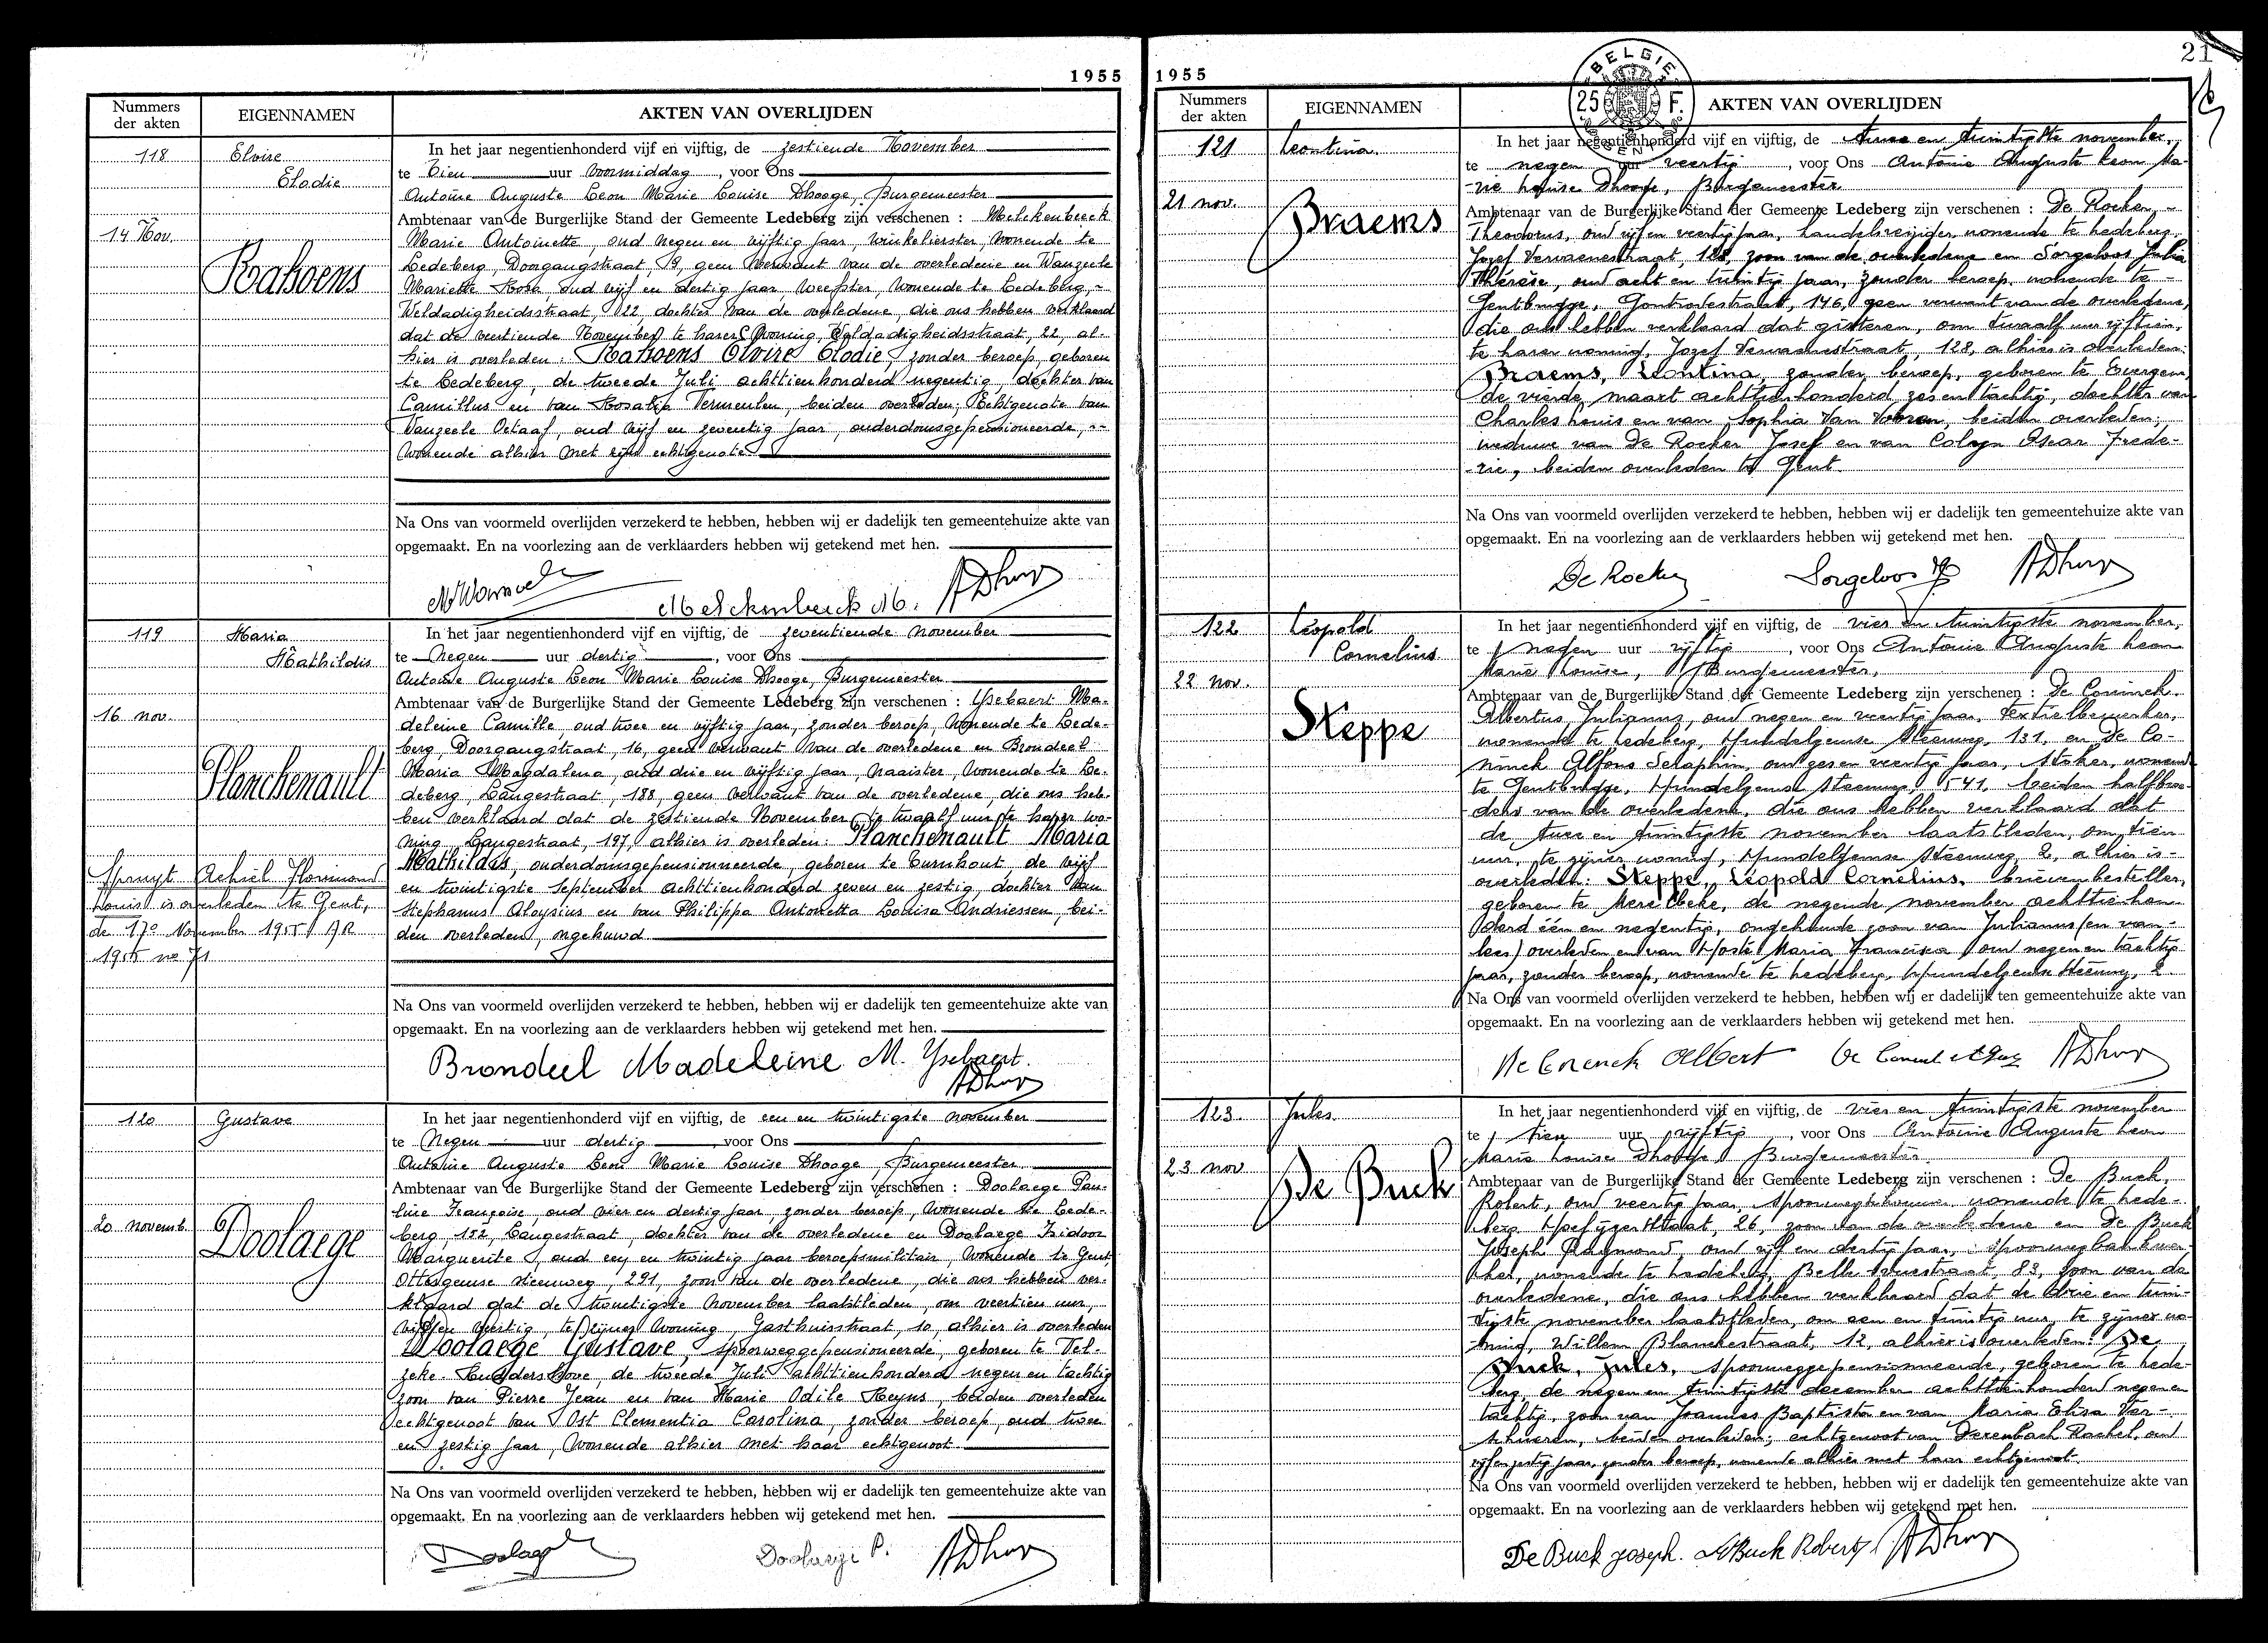 1955
Nummers der akten
EIGENNAMEN
AKTEN VAN OVERLIJDEN
118
Elvire
Elodie
14 Nov.
Rahoens
In het jaar negentienhonderd vijf en vijftig, de zestiende November
te Tien uur voormiddag, voor Ons
Antoine Auguste Leon Marie Louise Dhooge, Burgemeester
Ambtenaar van de Burgerlijke Stand der Gemeente Ledeberg zijn verschenen : Melckenbeeck
Marie Antoinette, oud negen en vijftig jaar, winkelierster, wonende te
Ledeberg, Doorgangstraat, 19, geen verwant van de overledene en Wanzeele
Mariette Rosa, oud vijf en dertig jaar, weefster, wonende te Ledeberg,
Weldadigheidsstraat, 22, dochter van de overledene, die ons hebben verklaard
dat de veertiende November te harer woning, Weldadigheidsstraat, 22, al-
hier is overleden : Rahoens Elvire Elodie, zonder beroep, geboren
te Ledeberg, de tweede Juli achttienhonderd negentig, dochter van
Camillus en van Rosalia Vermeulen, beiden overleden, Echtgenote van
Wanzeele Octaaf, oud vijf en zeventig jaar, ouderdomsgepensioneerde,
wonende alhier met zijn echtgenote
Na Ons van voormeld overlijden verzekerd te hebben, hebben wij er dadelijk ten gemeentehuize akte van
opgemaakt. En na voorlezing aan de verklaarders hebben wij getekend met hen.
Melckenbeeck M. ADhoog
119
Maria
Mathildis
16 nov.
Planchenault
Spruyt Achiel Florimond
Louis is overleden te Gent,
de 17e November 1955 AR
1955 no 71
In het jaar negentienhonderd vijf en vijftig, de zeventiende november
te Negen uur dertig, voor Ons
Antoine Auguste Leon Marie Louise Dhooge, Burgemeester
Ambtenaar van de Burgerlijke Stand der Gemeente Ledeberg zijn verschenen : Ysebaert Ma-
deleine Camille, oud twee en vijftig jaar, zonder beroep, wonende te Lede-
berg, Doorgangstraat, 16, geen verwant van de overledene en Brondeel
Maria Magdalena, oud drie en vijftig jaar, naaister, wonende te Le-
deberg, Langestraat, 188, geen verwant van de overledene, die ons heb-
ben verklaard dat de zestiende November te twaalf uur te harer wo-
ning, Langestraat, 197, alhier is overleden : Planchenault Maria
Mathildis, ouderdomsgepensionneerde, geboren te Turnhout, de vijf
en twintigste September achttienhonderd zeven en zestig, dochter van
Stephanus Aloysius en van Philippa Antonetta Louisa Andriessen, bei-
den overleden, ongehuwd
Na Ons van voormeld overlijden verzekerd te hebben, hebben wij er dadelijk ten gemeentehuize akte van
opgemaakt. En na voorlezing aan de verklaarders hebben wij getekend met hen.
Brondeel Madeleine M. Ysebaert.
ADhoog
120
Gustave
20 novemb.
Doolaege
In het jaar negentienhonderd vijf en vijftig, de een en twintigste november
te Negen uur dertig, voor Ons
Antoine Auguste Leon Marie Louise Dhooge, Burgemeester
Ambtenaar van de Burgerlijke Stand der Gemeente Ledeberg zijn verschenen : Doolaege Pau-
line Françoise, oud vier en dertig jaar, zonder beroep, wonende te Lede-
berg, 152, Langestraat, dochter van de overledene en Doolaege Izidoor
Marguerite, oud een en twintig jaar beroepsmilitair, wonende te Gent,
Ottergemse steenweg, 291, zoon van de overledene, die ons hebben ver-
klaard dat de twintigste November laatstleden, om veertien uur,
vijf en veertig, te zijner woning, Gasthuisstraat, 10, alhier is overleden
Doolaege Gustave, spoorweggepensioneerde, geboren te Vel-
zeke-Ruddershove, de tweede Juli achttienhonderd negen en tachtig
zoon van Pierre Jean en van Marie Odile Heyns, beiden overleden
echtgenoot van Ost Clementia Carolina, zonder beroep, oud twee
en zestig jaar, wonende alhier met haar echtgenoot
Na Ons van voormeld overlijden verzekerd te hebben, hebben wij er dadelijk ten gemeentehuize akte van
opgemaakt. En na voorlezing aan de verklaarders hebben wij getekend met hen.
Doolaege Doolaege P. ADhoog
1955
21
BELGIE
25 F.
Nummers der akten
EIGENNAMEN
AKTEN VAN OVERLIJDEN
121
Leontina.
21 nov.
Braems
In het jaar negentienhonderd vijf en vijftig, de twee en twintigste november,
te negen uur veertig, voor Ons Antoine Auguste Leon Ma-
rie Louise Dhooge, Burgemeester
Ambtenaar van de Burgerlijke Stand der Gemeente Ledeberg zijn verschenen : De Rocker,
Theodorus, oud vijf en veertig jaar, handelsreiziger, wonende te Ledeberg,
Jozef Vervaenestraat, 128, zoon van de overledene en Sorgeloos Julia
Thérèse, oud acht en twintig jaar, zonder beroep, wonende te
Gentbrugge, Gontrodestraat, 146, geen verwant van de overledene,
die ons hebben verklaard dat gisteren, om twaalf uur vijftien,
te harer woning, Jozef Vervaenestraat, 128, alhier is overleden:
Braems, Leontina, zonder beroep, geboren te Evergem,
de vierde maart achttienhonderd zes en tachtig, dochter van
Charles Louis en van Sophia Van Vooren, beiden overleden;
weduwe van De Rocker Josef en van Colyn Oscar Frede-
ric, beiden overleden te Gent
Na Ons van voormeld overlijden verzekerd te hebben, hebben wij er dadelijk ten gemeentehuize akte van
opgemaakt. En na voorlezing aan de verklaarders hebben wij getekend met hen.
De Rocker Sorgeloos ADhoog
122
Léopold
Cornelius
22 nov.
Steppe
In het jaar negentienhonderd vijf en vijftig, de vier en twintigste november,
te negen uur vijftig, voor Ons Antoine Auguste Leon
Marie Louise, Burgemeester,
Ambtenaar van de Burgerlijke Stand der Gemeente Ledeberg zijn verschenen : De Coninck
Albertus, Julianus, oud negen en veertig jaar, textielbewerker,
wonende te Ledeberg, Hundelgemse steenweg, 131, en De Co-
ninck Alfons Seraphin, oud zes en veertig jaar, stoker, wonende
te Gentbrugge, Hundelgemse steenweg, 541, beiden halfbroe-
ders van de overledene, die ons hebben verklaard dat
de twee en twintigste november laatstleden, om tien
uur, te zijner woning, Hundelgemse steenweg 2, alhier is
overleden: Steppe, Léopold Cornelius, brievenbesteller,
geboren te Merelbeke, de negende november achttienhon-
derd één en negentig, ongehuwde zoon van Julianus (en van
lees) overleden en van Hoste Maria Francisca oud negen en tachtig
jaar, zonder beroep, wonende te Ledeberg, Hundelgemse steenweg, 2
Na Ons van voormeld overlijden verzekerd te hebben, hebben wij er dadelijk ten gemeentehuize akte van
opgemaakt. En na voorlezing aan de verklaarders hebben wij getekend met hen.
De Coninck Albert ADhoog
123.
Jules
23 nov
De Buck
In het jaar negentienhonderd vijf en vijftig, de vier en twintigste november
te tien uur vijftig, voor Ons Antoine Auguste Leon
Marie Louise Dhooge, Burgemeester
Ambtenaar van de Burgerlijke Stand der Gemeente Ledeberg zijn verschenen : De Buck,
Robert, oud veertig jaar, wonende te Lede-
berg, Hoefijzerstraat, 26, zoon van de overledene en De Buck
Joseph Raymond, oud vijf en dertig jaar, spoorwegbankwer-
ker, wonende te Ledeberg, Bellevuestraat, 83, zoon van de
overledene, die ons hebben verklaard dat de drie en twin-
tigste november laatstleden, om een en twintig uur, te zijner wo-
ning, Willem Blanckestraat, 12, alhier is overleden: De
Buck, Jules, spoorweggepensionneerde, geboren te Lede-
berg, de negen en twintigste december achttienhonderd negen en
tachtig, zoon van Joannes Baptista en van Maria Elisa Ver-
schueren, beiden overleden; echtgenoot van Derenbach Rachel, oud
vijf en zestig jaar, zonder beroep, wonende alhier met haar echtgenoot.
Na Ons van voormeld overlijden verzekerd te hebben, hebben wij er dadelijk ten gemeentehuize akte van
opgemaakt. En na voorlezing aan de verklaarders hebben wij getekend met hen.
De Buck Joseph. DBuck Robert ADhoog